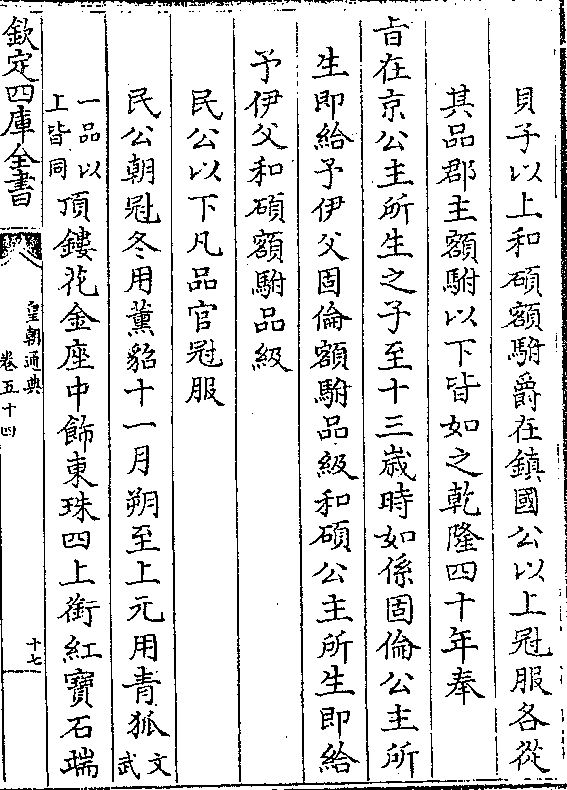 貝子以上和碩額駙爵在鎮國公以上冠服各從
其品郡主額駙以下皆如之乾隆四十年奉
㫖在京公主所生之子至十三歲時如係固倫公主所
生即給予伊父固倫額駙品級和碩公主所生即給
予伊父和碩額駙品級
民公以下凡品官冠服
民公朝冠冬用薰貂十一月朔至上元用青狐文武
一品以上皆同頂鏤花金座中飾東珠四上銜紅寶石端
欽定四庫全書
皇朝通典
卷五十四
十七